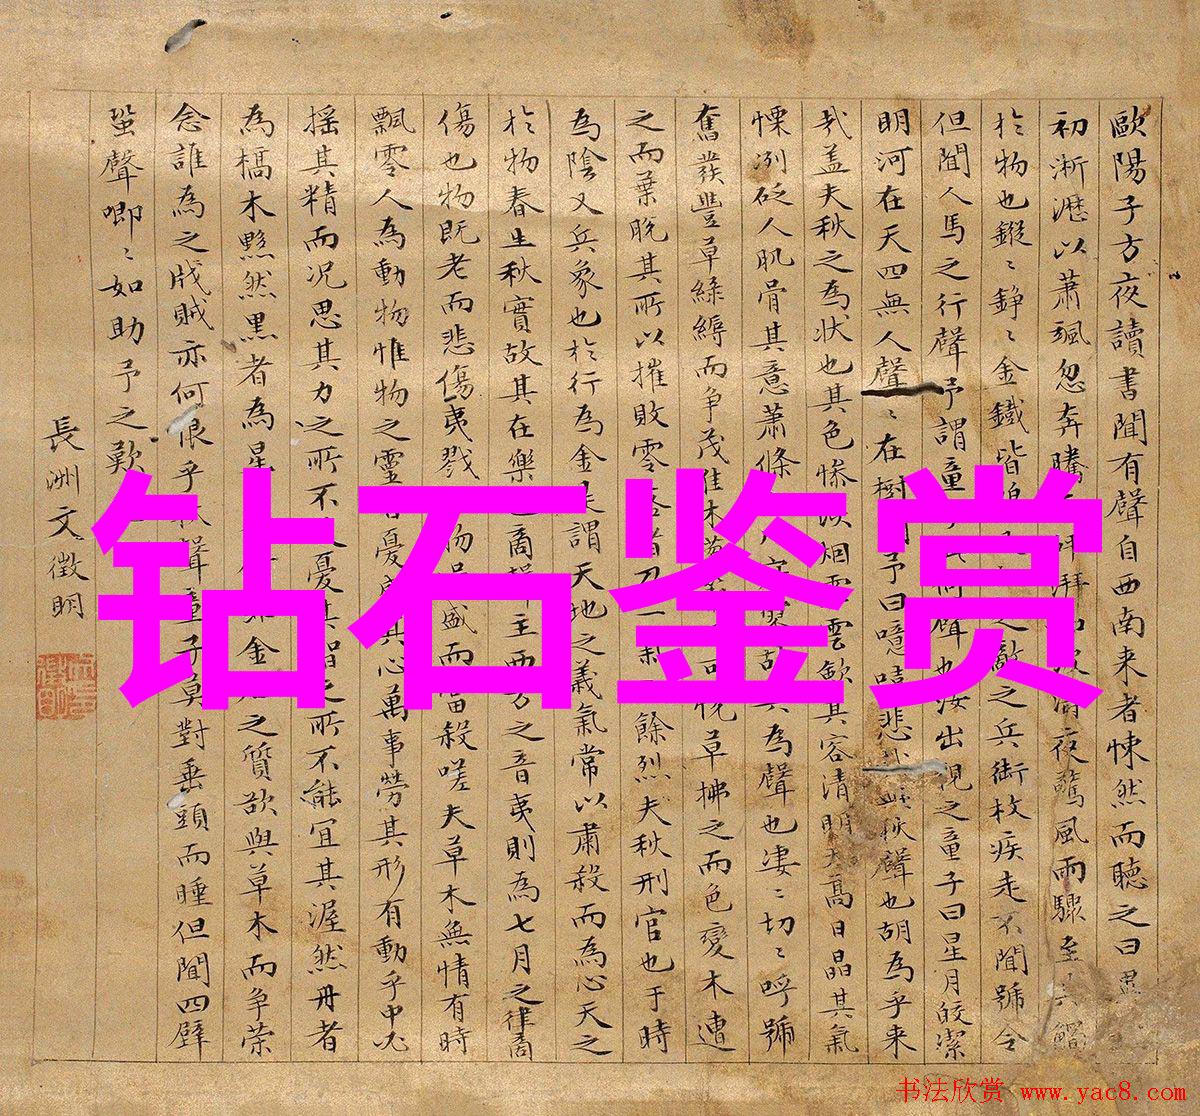 歐陽子方夜讀書聞有聲自西南来者悚然而聽之曰
初淅瀝以蕭颯忽奔騰夜驚風雨驟至
於物也鏦〻錚〻金鐵皆敵之兵銜枚疾走不聞號令
但聞人馬之行聲予謂童何聲也汝出視之童子曰星月皎潔
明河在天四無人聲〻在樹予曰噫嘻悲秋聲也胡為乎来
哉盖夫秋之為状也其色惨淡烟霏雲歛其容清明天高日晶其氣
慄洌砭人肌骨其意蕭條其為聲也凄〻切〻呼號
奮發豐草綠縟而争茂佳木可悦草拂之而色變木遭
之而葉脱其所以摧敗零落者乃一氣餘烈夫秋刑官也于時
為陰又兵象也於行為金是謂天地之義氣常以肅殺而為心天之
於物春生秋實故其在樂也商聲主西方之音夷則為七月之律商
傷也物既老而悲傷夷戮物過盛而當殺嗟夫草木無情有時
飄零人為動物惟物之靈百憂感其心萬事勞其形有動乎中必
摇其精而况思其力之所不及憂其智之所不能宜其渥然丹者
為槁木黟然黒者為星非金石之質欲與草木而争荣
念誰為之戕賊亦何恨乎秋聲童子莫對垂頭而睡但聞四壁
蛩聲唧〻如助予之歎
長洲文徵明
钻石鉴赏
书法欣赏 www.yac8.com